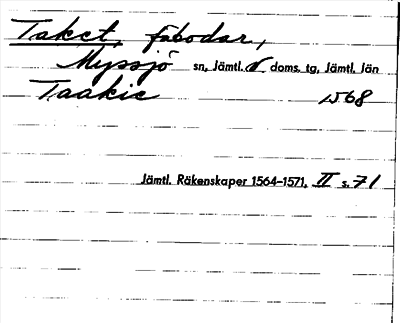 Taket, fäbodar,
Myssjö sn, Jämtl. V doms. tg, Jämtl. län
Taakie 1568
Jämtl. Räkenskaper 1564–1571, II s. 71